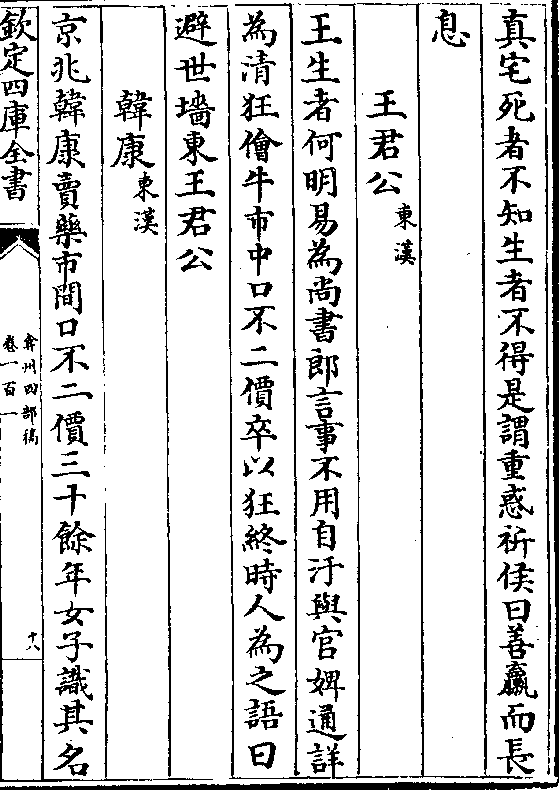 真宅死者不知生者不得是謂重惑祈侯曰善羸而長
息
王君公東漢
王生者何明易為尚書郎言事不用自汙與官婢通詳
為清狂儈牛市中口不二價卒以狂終時人為之語曰
避世墻東王君公
韓康東漢
京兆韓康賣藥市間口不二價三十餘年女子識其名
欽定四庫全書
弇州四部稿
卷一百一
十八